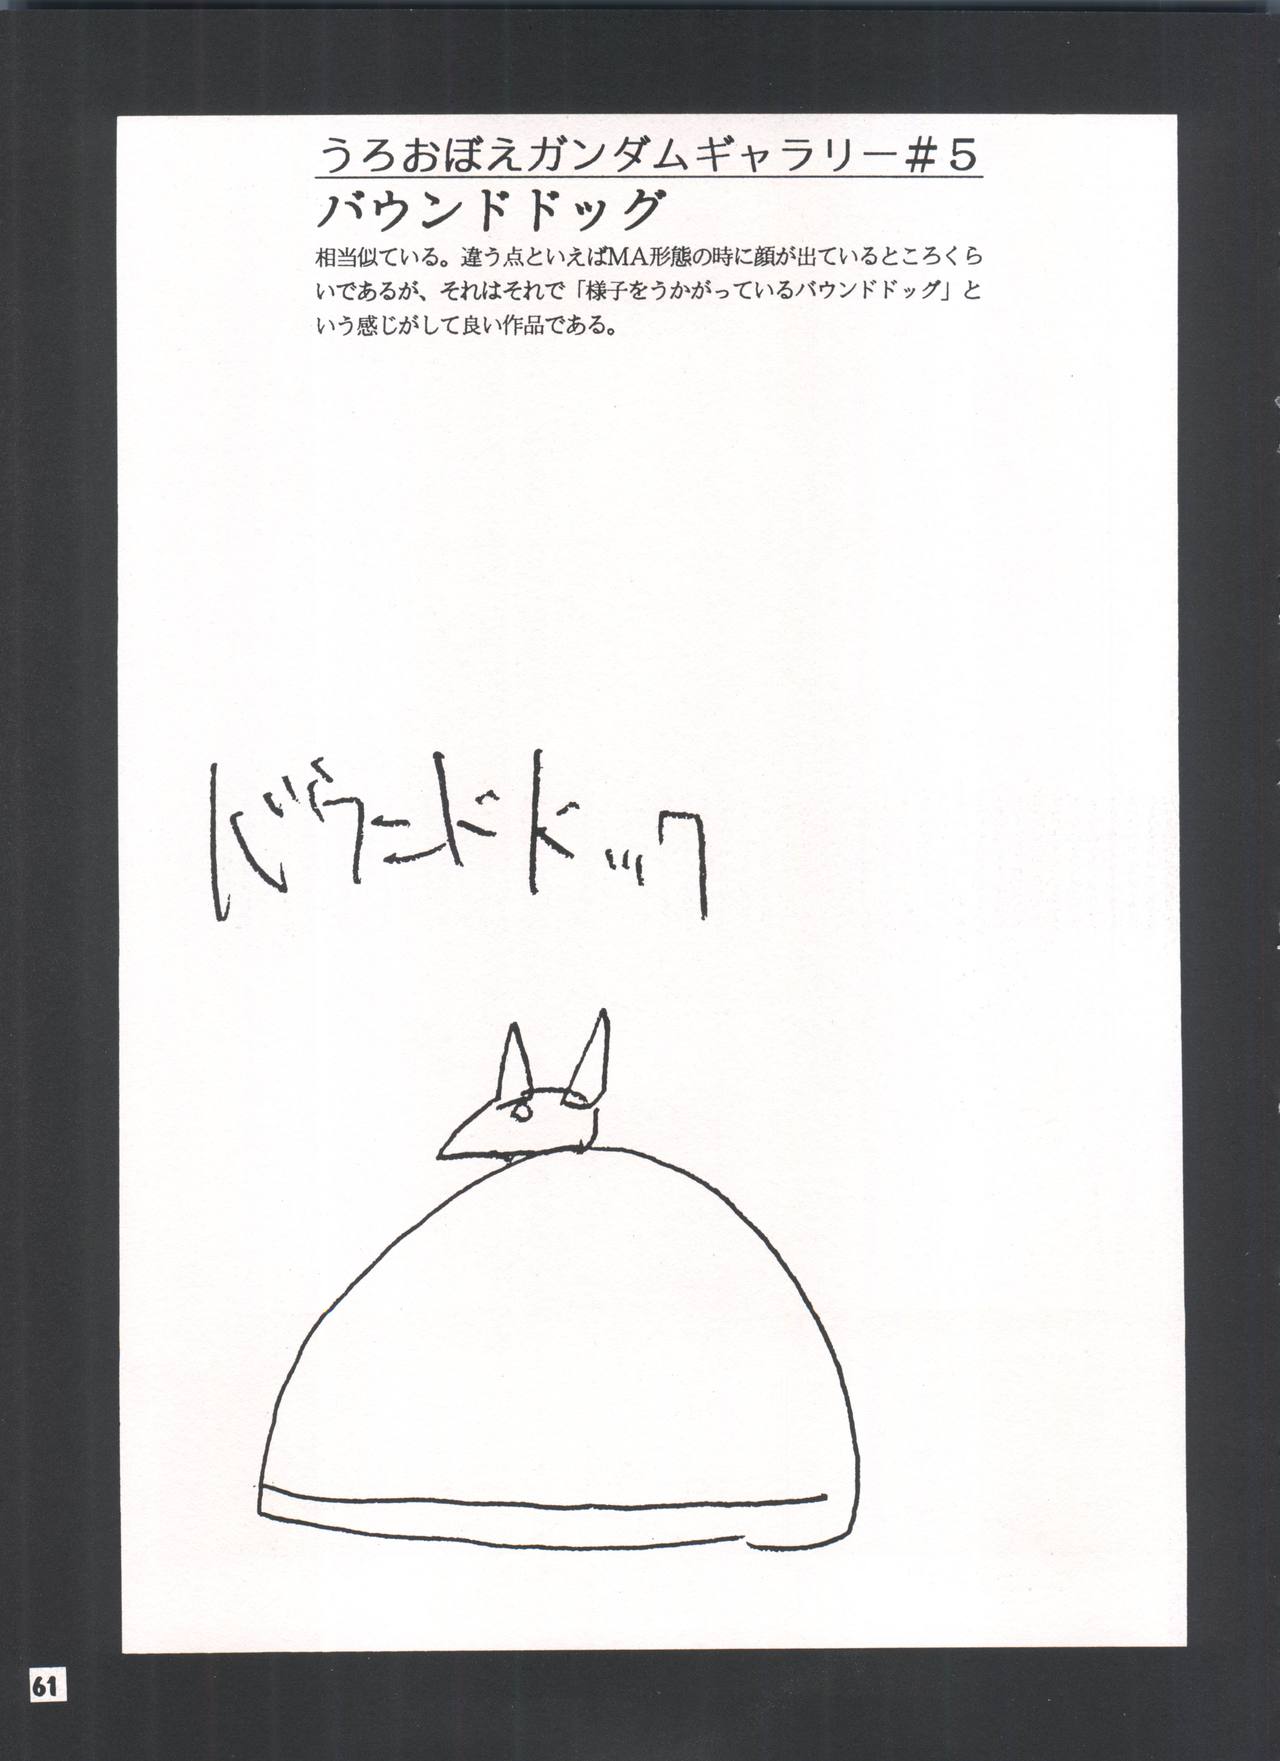 うろおぼえガンダムギャラリー＃５
バウンドドッグ
相当似ている。違う点といえばMA形態の時に顔が出ているところくら
いであるが、それはそれで「様子をうかがっているバウンドドッグ」と
いう感じがして良い作品である。
バウンドドック
61